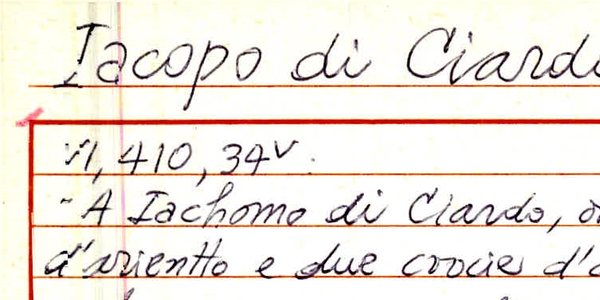 Iacopo di Ciardo
VI, 410, 34v.
- A Iachomo di Ciardo,
d'arientto e due crocie